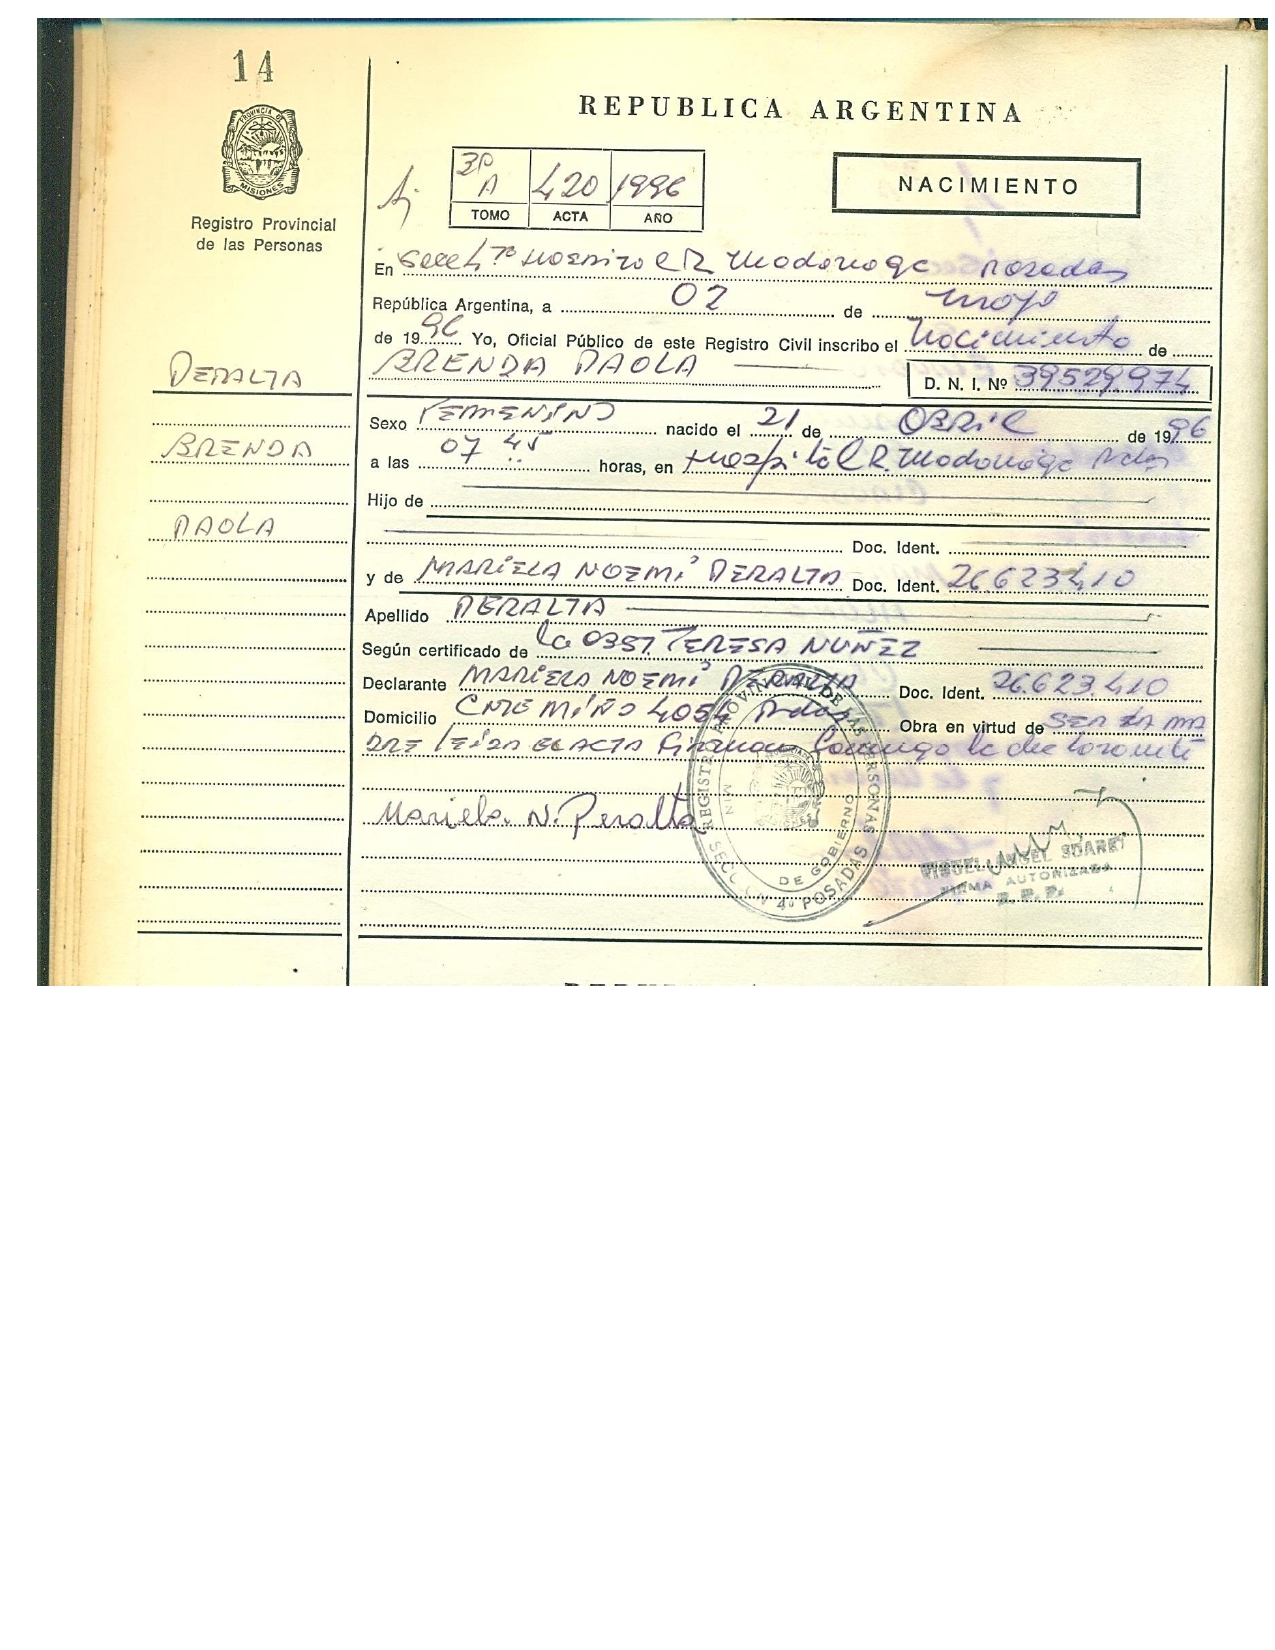 14
REPUBLICA ARGENTINA
PROVINCIA DE
MISIONES
Registro Provincial
de las Personas
3º
A 420 1996
TOMO ACTA AÑO
NACIMIENTO
En R. Madariaga Posadas
República Argentina, a 02 de mayo
de 1996 Yo, Oficial Público de este Registro Civil inscribo el Nacimiento de
BRENDA PAOLA D. N. I. Nº 39529974
PERALTA
BRENDA
PAOLA
Sexo FEMENINO nacido el 21 de ABRIL de 1996
a las 07 45 horas, en Hospital R. Madariaga Pdas
Hijo de
Doc. Ident.
y de MARIELA NOEMÍ PERALTA Doc. Ident. 26623410
Apellido PERALTA
Según certificado de la TERESA NUÑEZ
Declarante MARIELA NOEMÍ PERALTA Doc. Ident. 26.623.410
Domicilio MIÑO 4054 Pdas Obra en virtud de SER LA MA
DRE LEIDA EL ACTA Firman Conmigo la declarante
Mariela. N. Peralta
REGISTRO PROVINCIAL DE LAS PERSONAS
MIN DE GOBIERNO
SECCION 4º POSADAS
MIGUEL ANGEL SUAREZ
FIRMA AUTORIZADA
R. P. P.